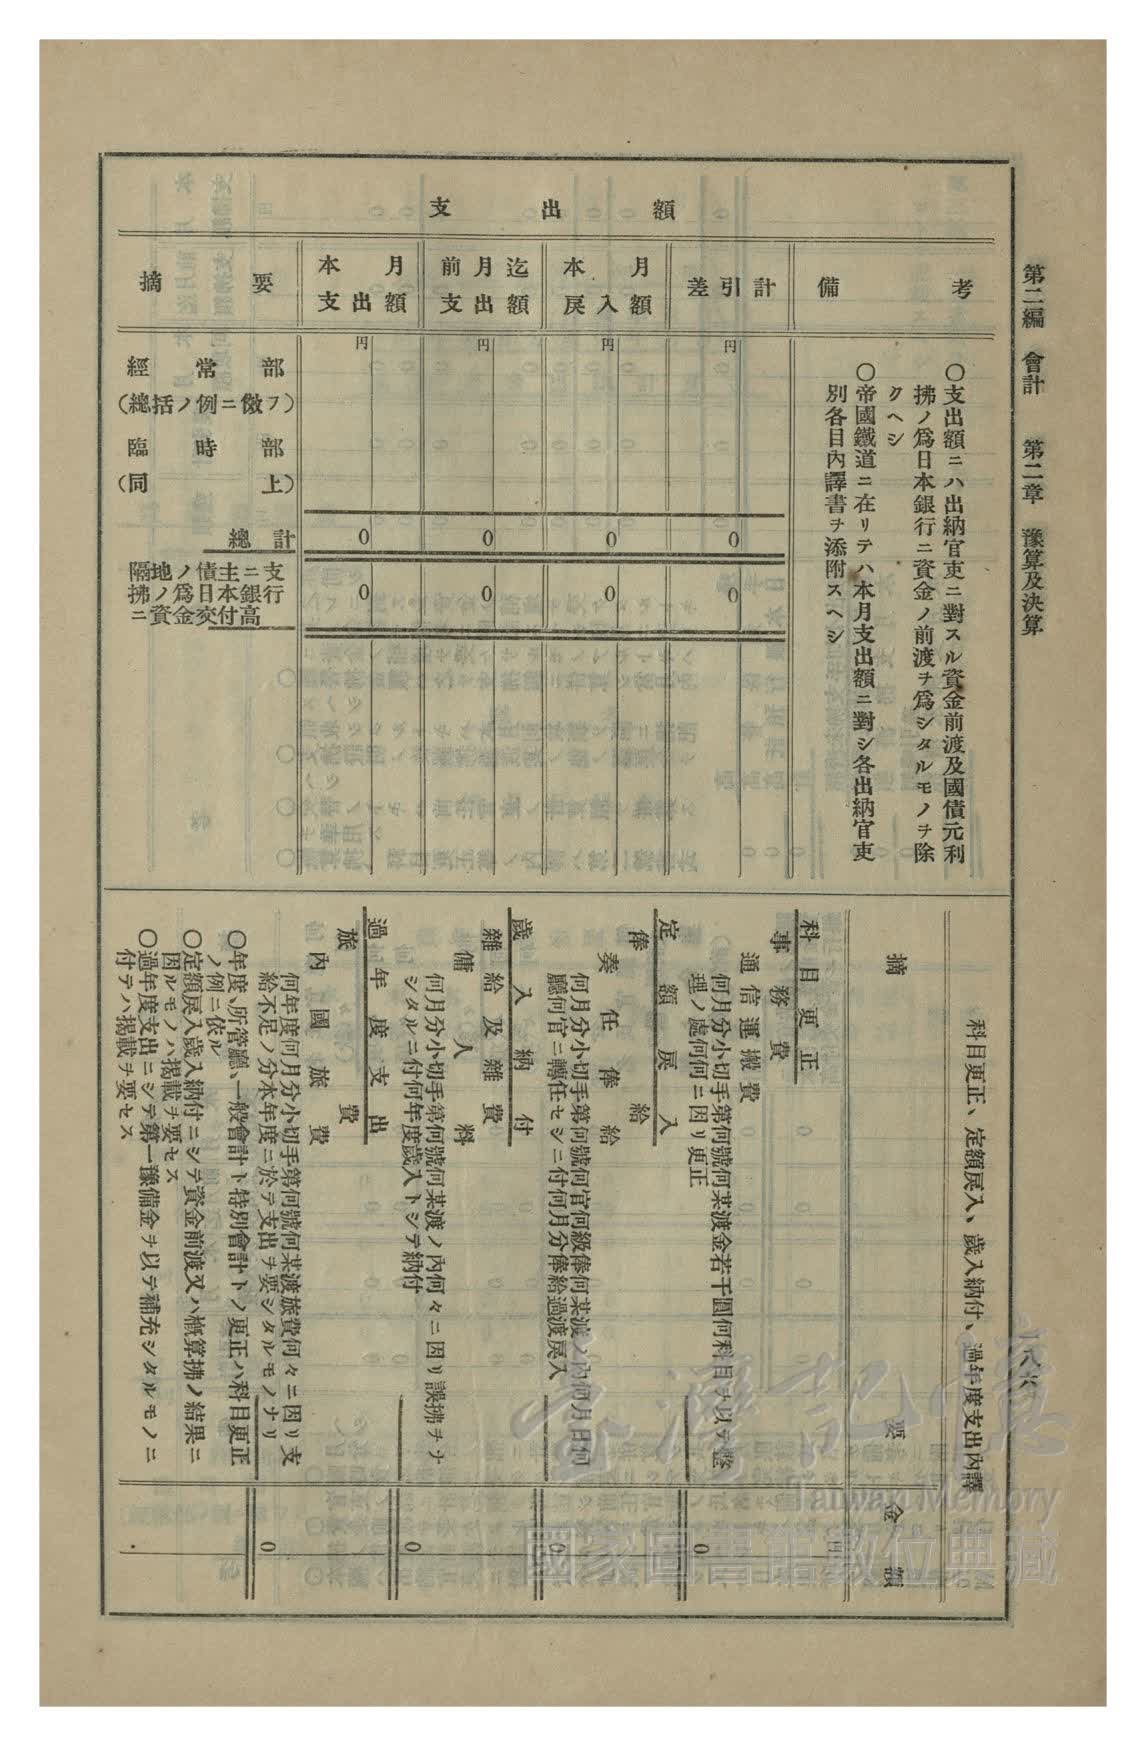 第二編 會計 第二章 豫算及決算
一八六
支出額
摘要
本月支出額
前月迄支出額
本月戻入額
差引計
備考
円 円 円 円
經常部
(總括ノ例ニ倣フ)
臨時部
(同上)
總計 0 0 0 0
隔地ノ債主ニ支
拂ノ爲日本銀行
ニ資金交付高 0 0 0 0
○支出額ニハ出納官吏ニ對スル資金前渡及國債元利
拂ノ爲日本銀行ニ資金ノ前渡ヲ爲シタルモノヲ除
クヘシ
○帝國鐵道ニ在リテハ本月支出額ニ對シ各出納官吏
別各目內譯書ヲ添附スヘシ
科目更正、定額戻入、歲入納付、過年度支出內譯
摘要 金額
円
科目更正
事務費
通信運搬費
何月分小切手第何號何某渡金若干圓何科目ヲ以テ整
理ノ處何何ニ因リ更正 0
定額戻入
俸給
奏任俸給
何月分小切手第何號何官何級俸何某渡ノ內何月日何
廳何官ニ轉任セシニ付何月分俸給過渡戻入 0
歲入納付
雜給及雜費
傭人料
何月分小切手第何號何某渡ノ內何々ニ因リ誤拂ヲナ
シタルニ付何年度歲入トシテ納付 0
過年度支出
旅費
內國旅費
何年度何月分小切手第何號何某渡旅費何々ニ因リ支
給不足ノ分本年度ニ於テ支出ヲ要シタルモノナリ 0
○年度、所管廳、一般會計ト特別會計トノ更正ハ科目更正
ノ例ニ依ル
○定額戻入歲入納付ニシテ資金前渡又ハ槪算拂ノ結果ニ
因ルモノハ揭載ヲ要セス
○過年度支出ニシテ第一豫備金ヲ以テ補充シタルモノニ
付テハ揭載ヲ要セス
臺灣記憶
Taiwan Memory
國家圖書館數位典藏